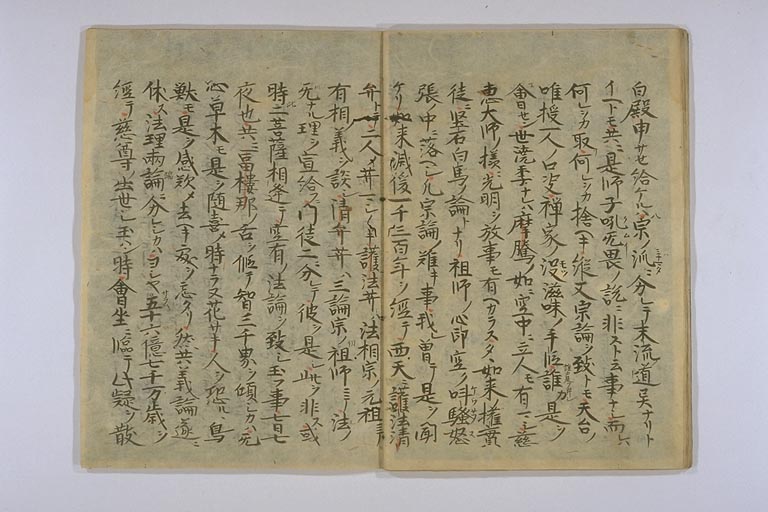 白殿申サセ給ケルハ宗ノ派ニ分レテ末流道異ナリト
イヘトモ共ニ是師子吼无畏ノ説ニ非スト云事ナシ而ルニ
何レヲカ取何レヲカ捨ヘキ縦又宗論ヲ致トモ天台ノ
唯授一人ノ口决禅家ノ没滋味ノ手段誰カ是ヲ
會セン世澆季ナレハ摩騰ノ如ニ空中ニ立人モ有マシ慈
恵大師ノ様ニ光明ヲ放事モ有ヘカラス夕如来権実
徒ニ堅石白馬ノ論トナリ祖師ノ心印空ク叫騒怒
張ノ中ニ落ヘシ凡宗論ノ難キ事我曽テ是ヲ聞
ケリ如来滅後一千三百年ヲ経テ西天護法清
弁トテ二人ノ菩薩マシマシキ護法菩薩ハ法相宗ノ元祖ニテ
有相ノ義ヲ談シ清弁菩薩ハ三論宗ノ祖師ニテ法ノ
无ナル理ヲ宣給フ門徒二ニ分レテ彼ヲ是シ此ヲ非ス或
時二菩薩相逢テ空有ノ法論ヲ致シ玉フ事七日七
夜也共ニ富樓那ノ舌ヲ仮テ智三千界ヲ傾シカハ无
心ノ草木モ是ヲ随喜シテ時ナラス花サキ人ヲ恐ルヽ鳥
獣モ是ヲ感歎シテ去ヘキ家ヲ忘タリ然共義論遂ニ
休ス法理両論ニ分レシカハヨシヤ五十六億七千万歳ヲ
經テ慈尊ノ出世シ玉ハン時會坐ニ臨テ此疑ヲ散